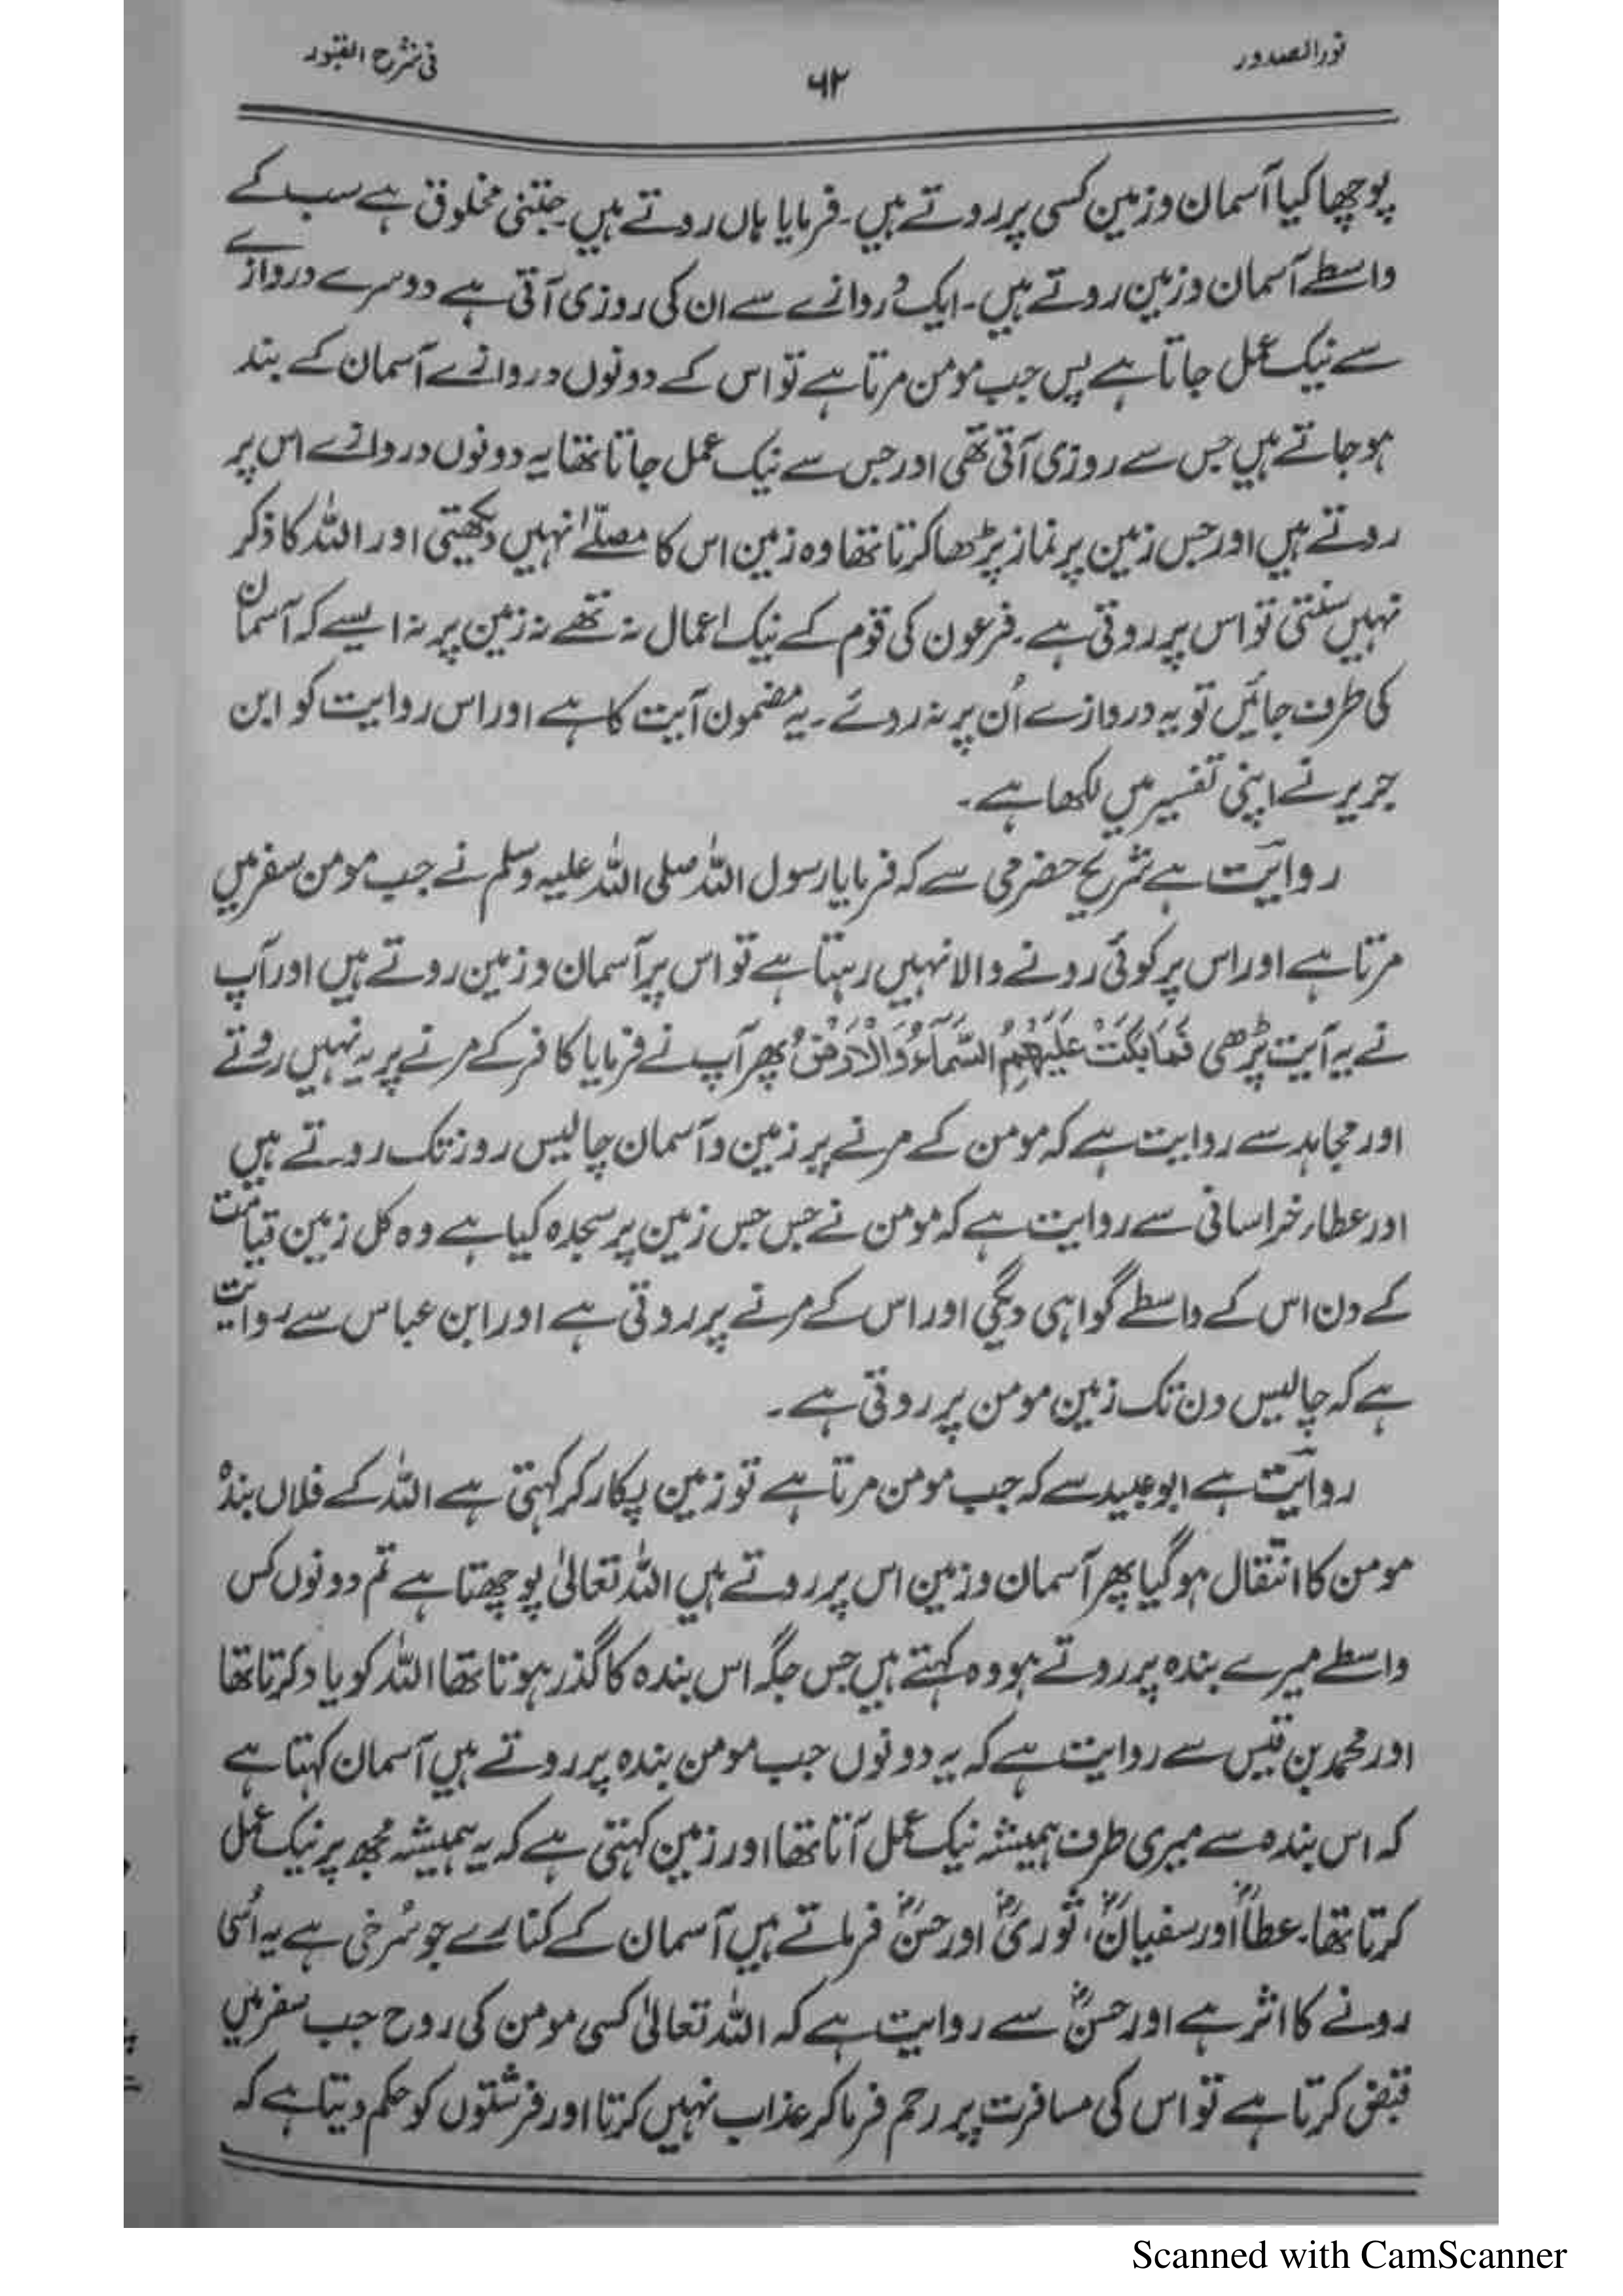 نور الصدور
۶۲
فی شرح القبور
پوچھا کیا آسمان و زمین کسی پر روتے ہیں۔ فرمایا ہاں روتے ہیں۔ جتنی مخلوق ہے سب کے
واسطے آسمان و زمین روتے ہیں۔ ایک دروازے سے ان کی روزی آتی ہے دوسرے دروازے
سے نیک عمل جاتا ہے پس جب مومن مرتا ہے تو اس کے دونوں دروازے آسمان کے بند
ہو جاتے ہیں جس سے روزی آتی تھی اور جس سے نیک عمل جاتا تھا یہ دونوں دروازے اس پر
روتے ہیں اور جس زمین پر نماز پڑھا کرتا تھا وہ زمین اس کا مصلّےٰ نہیں دیکھتی اور اللہ کا ذکر
نہیں سنتی تو اس پر روتی ہے۔ فرعون کی قوم کے نیک اعمال نہ تھے نہ زمین پر نہ ایسے کہ آسمان
کی طرف جائیں تو یہ دروازے اُن پر نہ روئے۔ یہ مضمون آیت کا ہے اور اس روایت کو ابن
جریر نے اپنی تفسیر میں لکھا ہے۔
روایت ہے شریح حضرمی سے کہ فرمایا رسول اللہ صلی اللہ علیہ وسلم نے جب مومن سفر میں
مرتا ہے اور اس پر کوئی رونے والا نہیں رہتا ہے تو اس پر آسمان و زمین روتے ہیں اور آپ
نے یہ آیت پڑھی فَمَا بَكَتْ عَلَيْهِمُ السَّمَآءُ وَالْاَرْضُ پھر آپ نے فرمایا کافر کے مرنے پر یہ نہیں روتے
اور مجاہد سے روایت ہے کہ مومن کے مرنے پر زمین و آسمان چالیس روز تک روتے ہیں
اور عطاء خراسانی سے روایت ہے کہ مومن نے جس جس زمین پر سجدہ کیا ہے وہ کل زمین قیامت
کے دن اس کے واسطے گواہی دیگی اور اس کے مرنے پر روتی ہے اور ابن عباس سے روایت
ہے کہ چالیس دن تک زمین مومن پر روتی ہے۔
روایت ہے ابو عبید سے کہ جب مومن مرتا ہے تو زمین پکار کر کہتی ہے اللہ کے فلاں بندہ
مومن کا انتقال ہو گیا پھر آسمان و زمین اس پر روتے ہیں اللہ تعالیٰ پوچھتا ہے تم دونوں کس
واسطے میرے بندہ پر روتے ہو وہ کہتے ہیں جس جگہ اس بندہ کا گذر ہوتا تھا اللہ کو یاد کرتا تھا
اور محمد بن قیس سے روایت ہے کہ یہ دونوں جب مومن بندہ پر روتے ہیں آسمان کہتا ہے
کہ اس بندہ سے میری طرف ہمیشہ نیک عمل آتا تھا اور زمین کہتی ہے کہ یہ ہمیشہ مجھ پر نیک عمل
کرتا تھا۔ عطاؒ اور سفیانؒ، ثوریؒ اور حسنؒ فرماتے ہیں آسمان کے کنارے جو سُرخی ہے یہ اُسی
رونے کا اثر ہے اور حسنؒ سے روایت ہے کہ اللہ تعالیٰ کسی مومن کی روح جب سفر میں
قبض کرتا ہے تو اس کی مسافرت پر رحم فرما کر عذاب نہیں کرتا اور فرشتوں کو حکم دیتا ہے کہ
Scanned with CamScanner